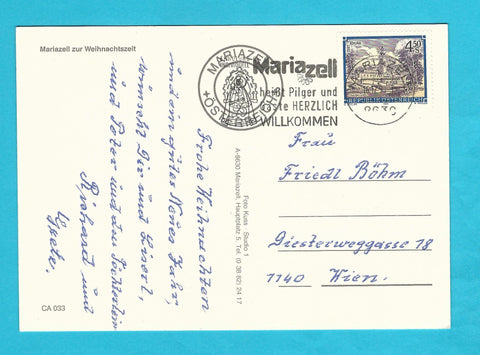 Mariazell zur Weihnachtszeit
MARIAZELL
+ÖSTERREICH
Mariazell
heißt Pilger und
Gäste HERZLICH
WILLKOMMEN
4.50
REPUBLIK ÖSTERREICH
8630
Frohe Weihnachten
und ein gutes Neues Jahr,
wünscht Dir und
und Peter und den
und
Frau
Friedl Böhm
Diesterweggasse 18
1140 Wien.
Foto Kuss - Studio 1
A-8630 Mariazell, Hauptplatz 5, Tel. (0 38 82) 24 17
CA 033